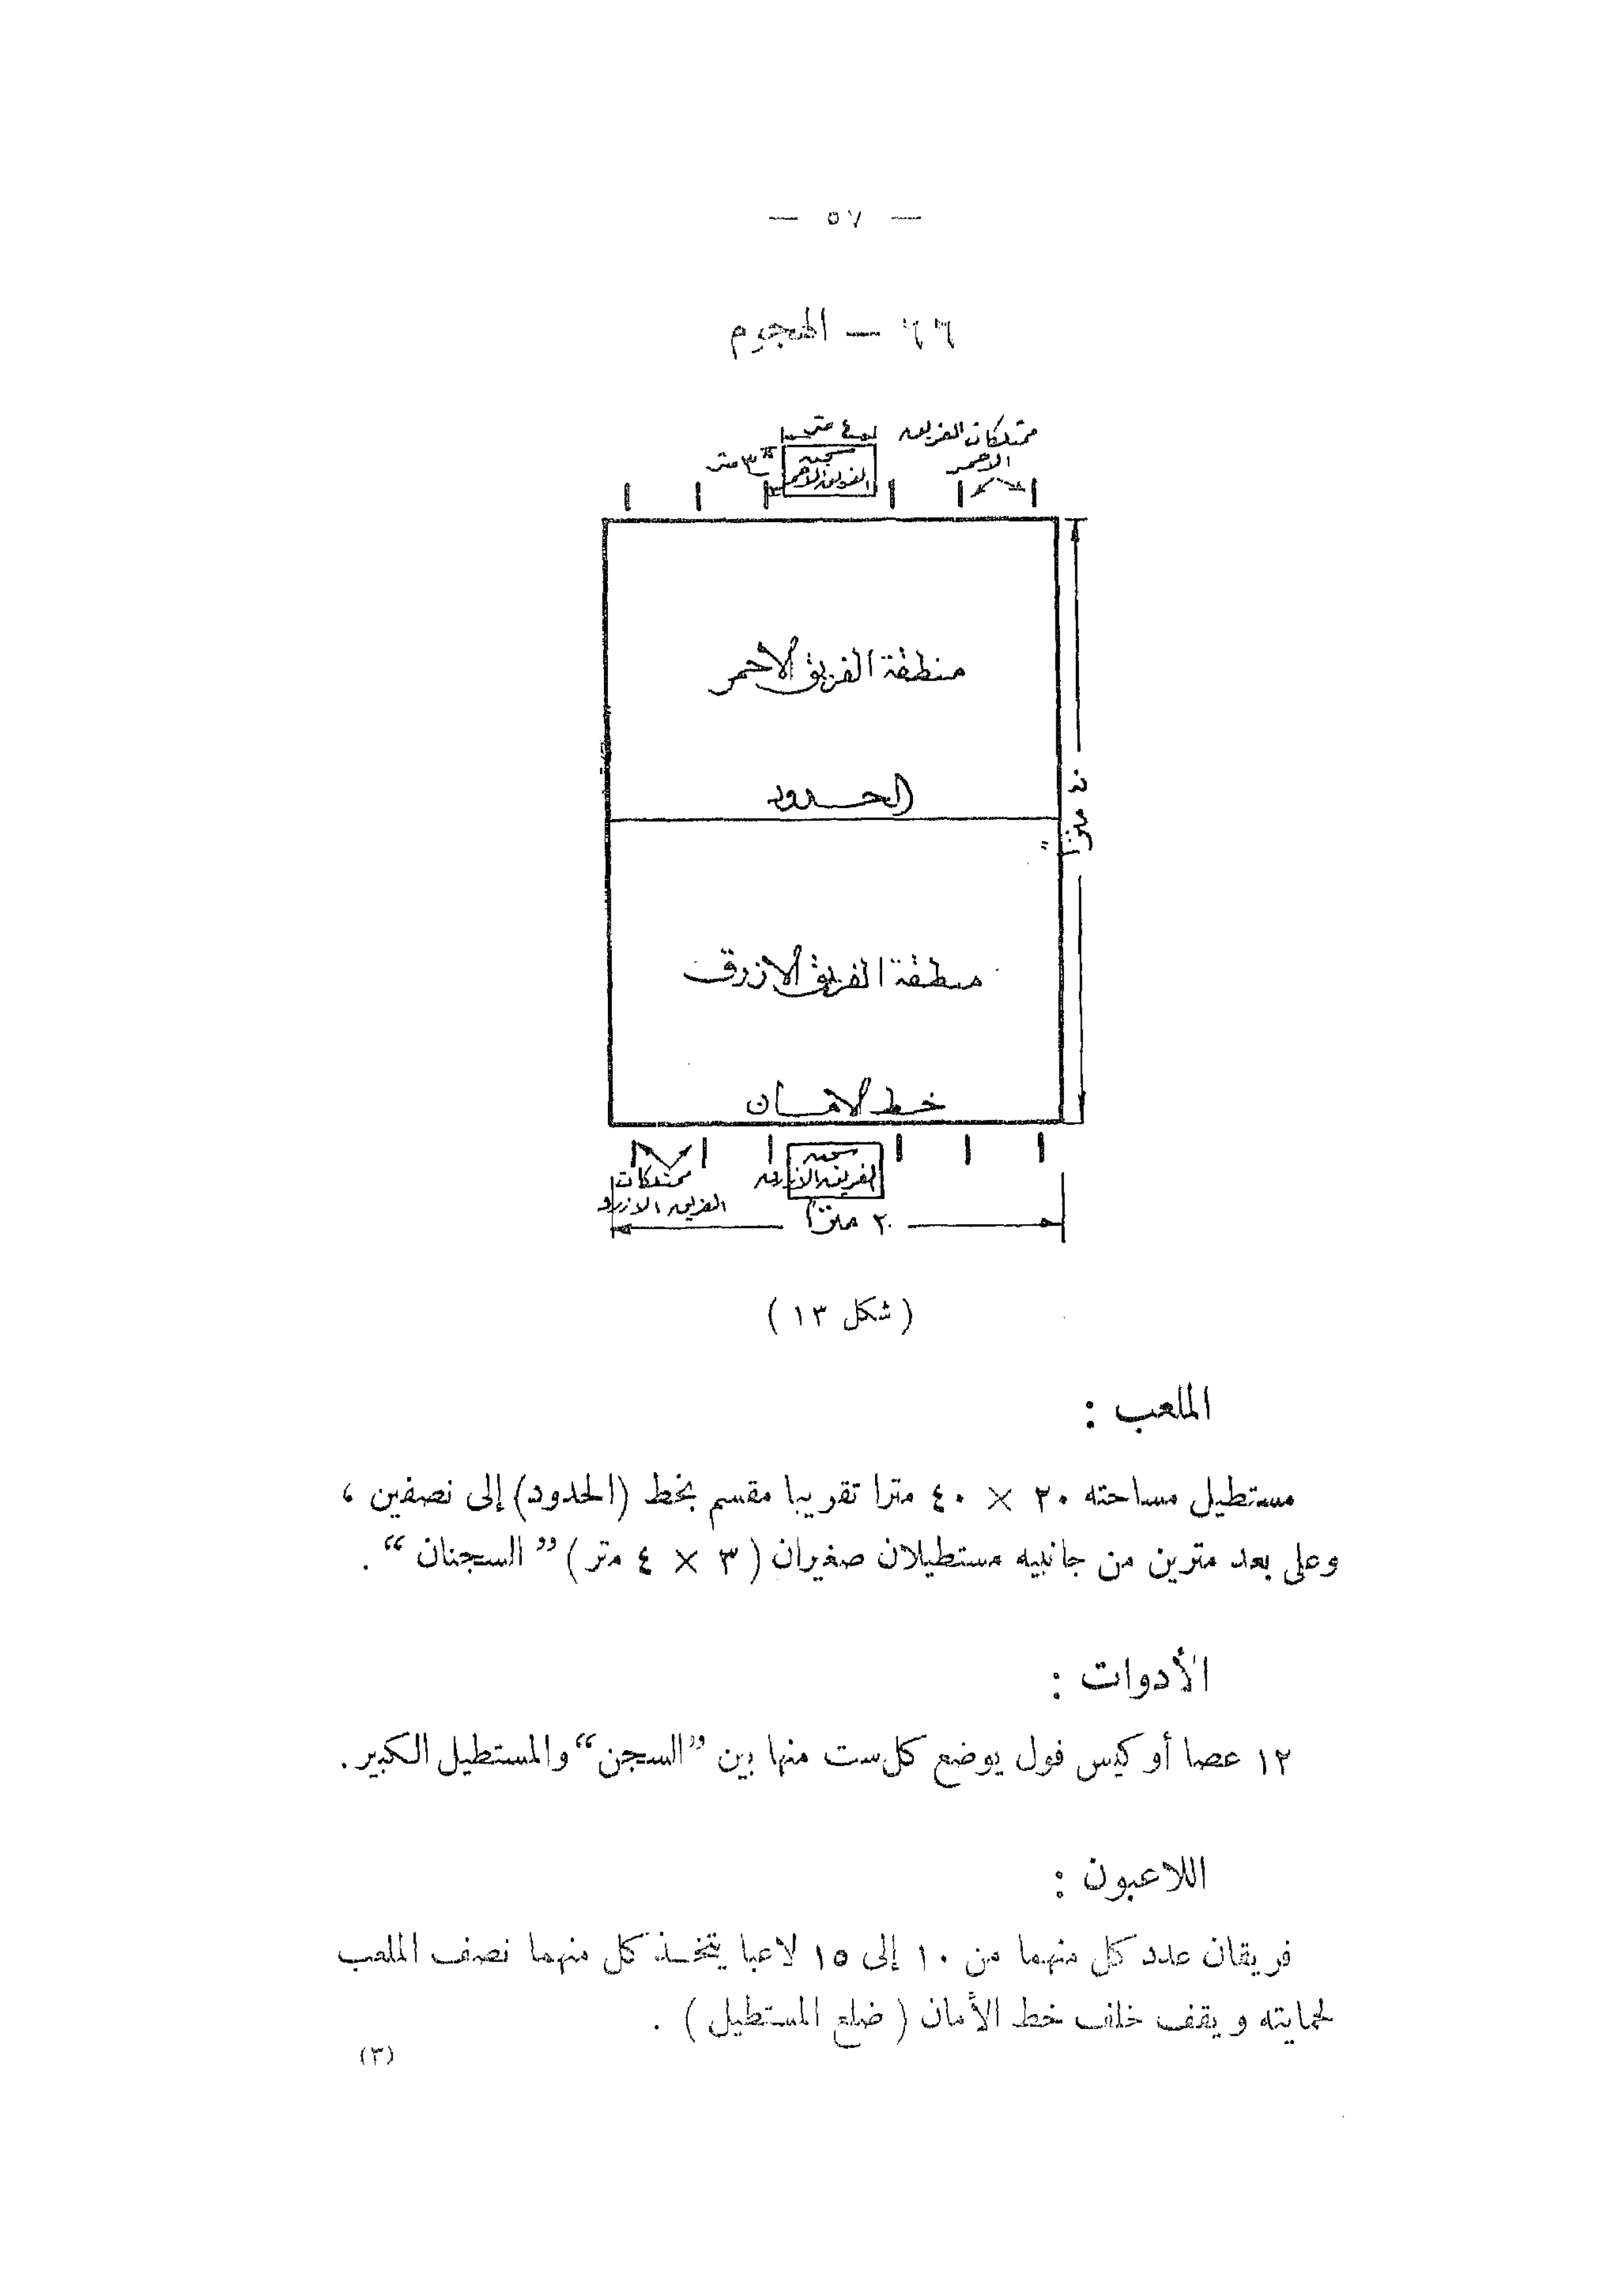 — ٥٧ —
٦٦ — الهجوم
ممتلكات الفريق
الاحمر
٤ متر
٣ متر
سجن
الفريق الاحمر
منطقة الفريق الاحمر
الحدود
٤٠ مترًا
منطقة الفريق الازرق
خط الامان
سجن
الفريق الازرق
ممتلكات
الفريق الازرق
٢٠ مترًا
( شكل ١٣ )
الملعب :
مستطيل مساحته ٢٠ × ٤٠ مترا تقريبا مقسم بخط (الحدود) إلى نصفين ،
وعلى بعد مترين من جانبيه مستطيلان صغيران ( ٣ × ٤ متر ) ” السجنان “ .
الأدوات :
١٢ عصا أو كيس فول يوضع كل ست منها بين ”السجن“ والمستطيل الكبير .
اللاعبون :
فريقان عدد كل منهما من ١٠ إلى ١٥ لاعبا يتخذ كل منهما نصف الملعب
لحمايته ويقف خلف خط الأمان ( ضلع المستطيل ) .
(٣)